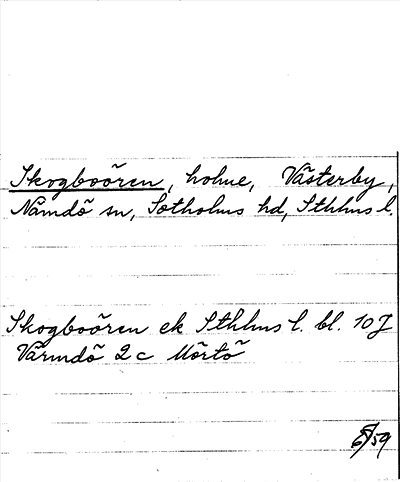 Skogboören, holme, Västerby,
Nämdö sn, Sotholms hd, Sthlms l.
Skogboören ek Sthlms l. bl. 10J
Värmdö 2c Mörtö